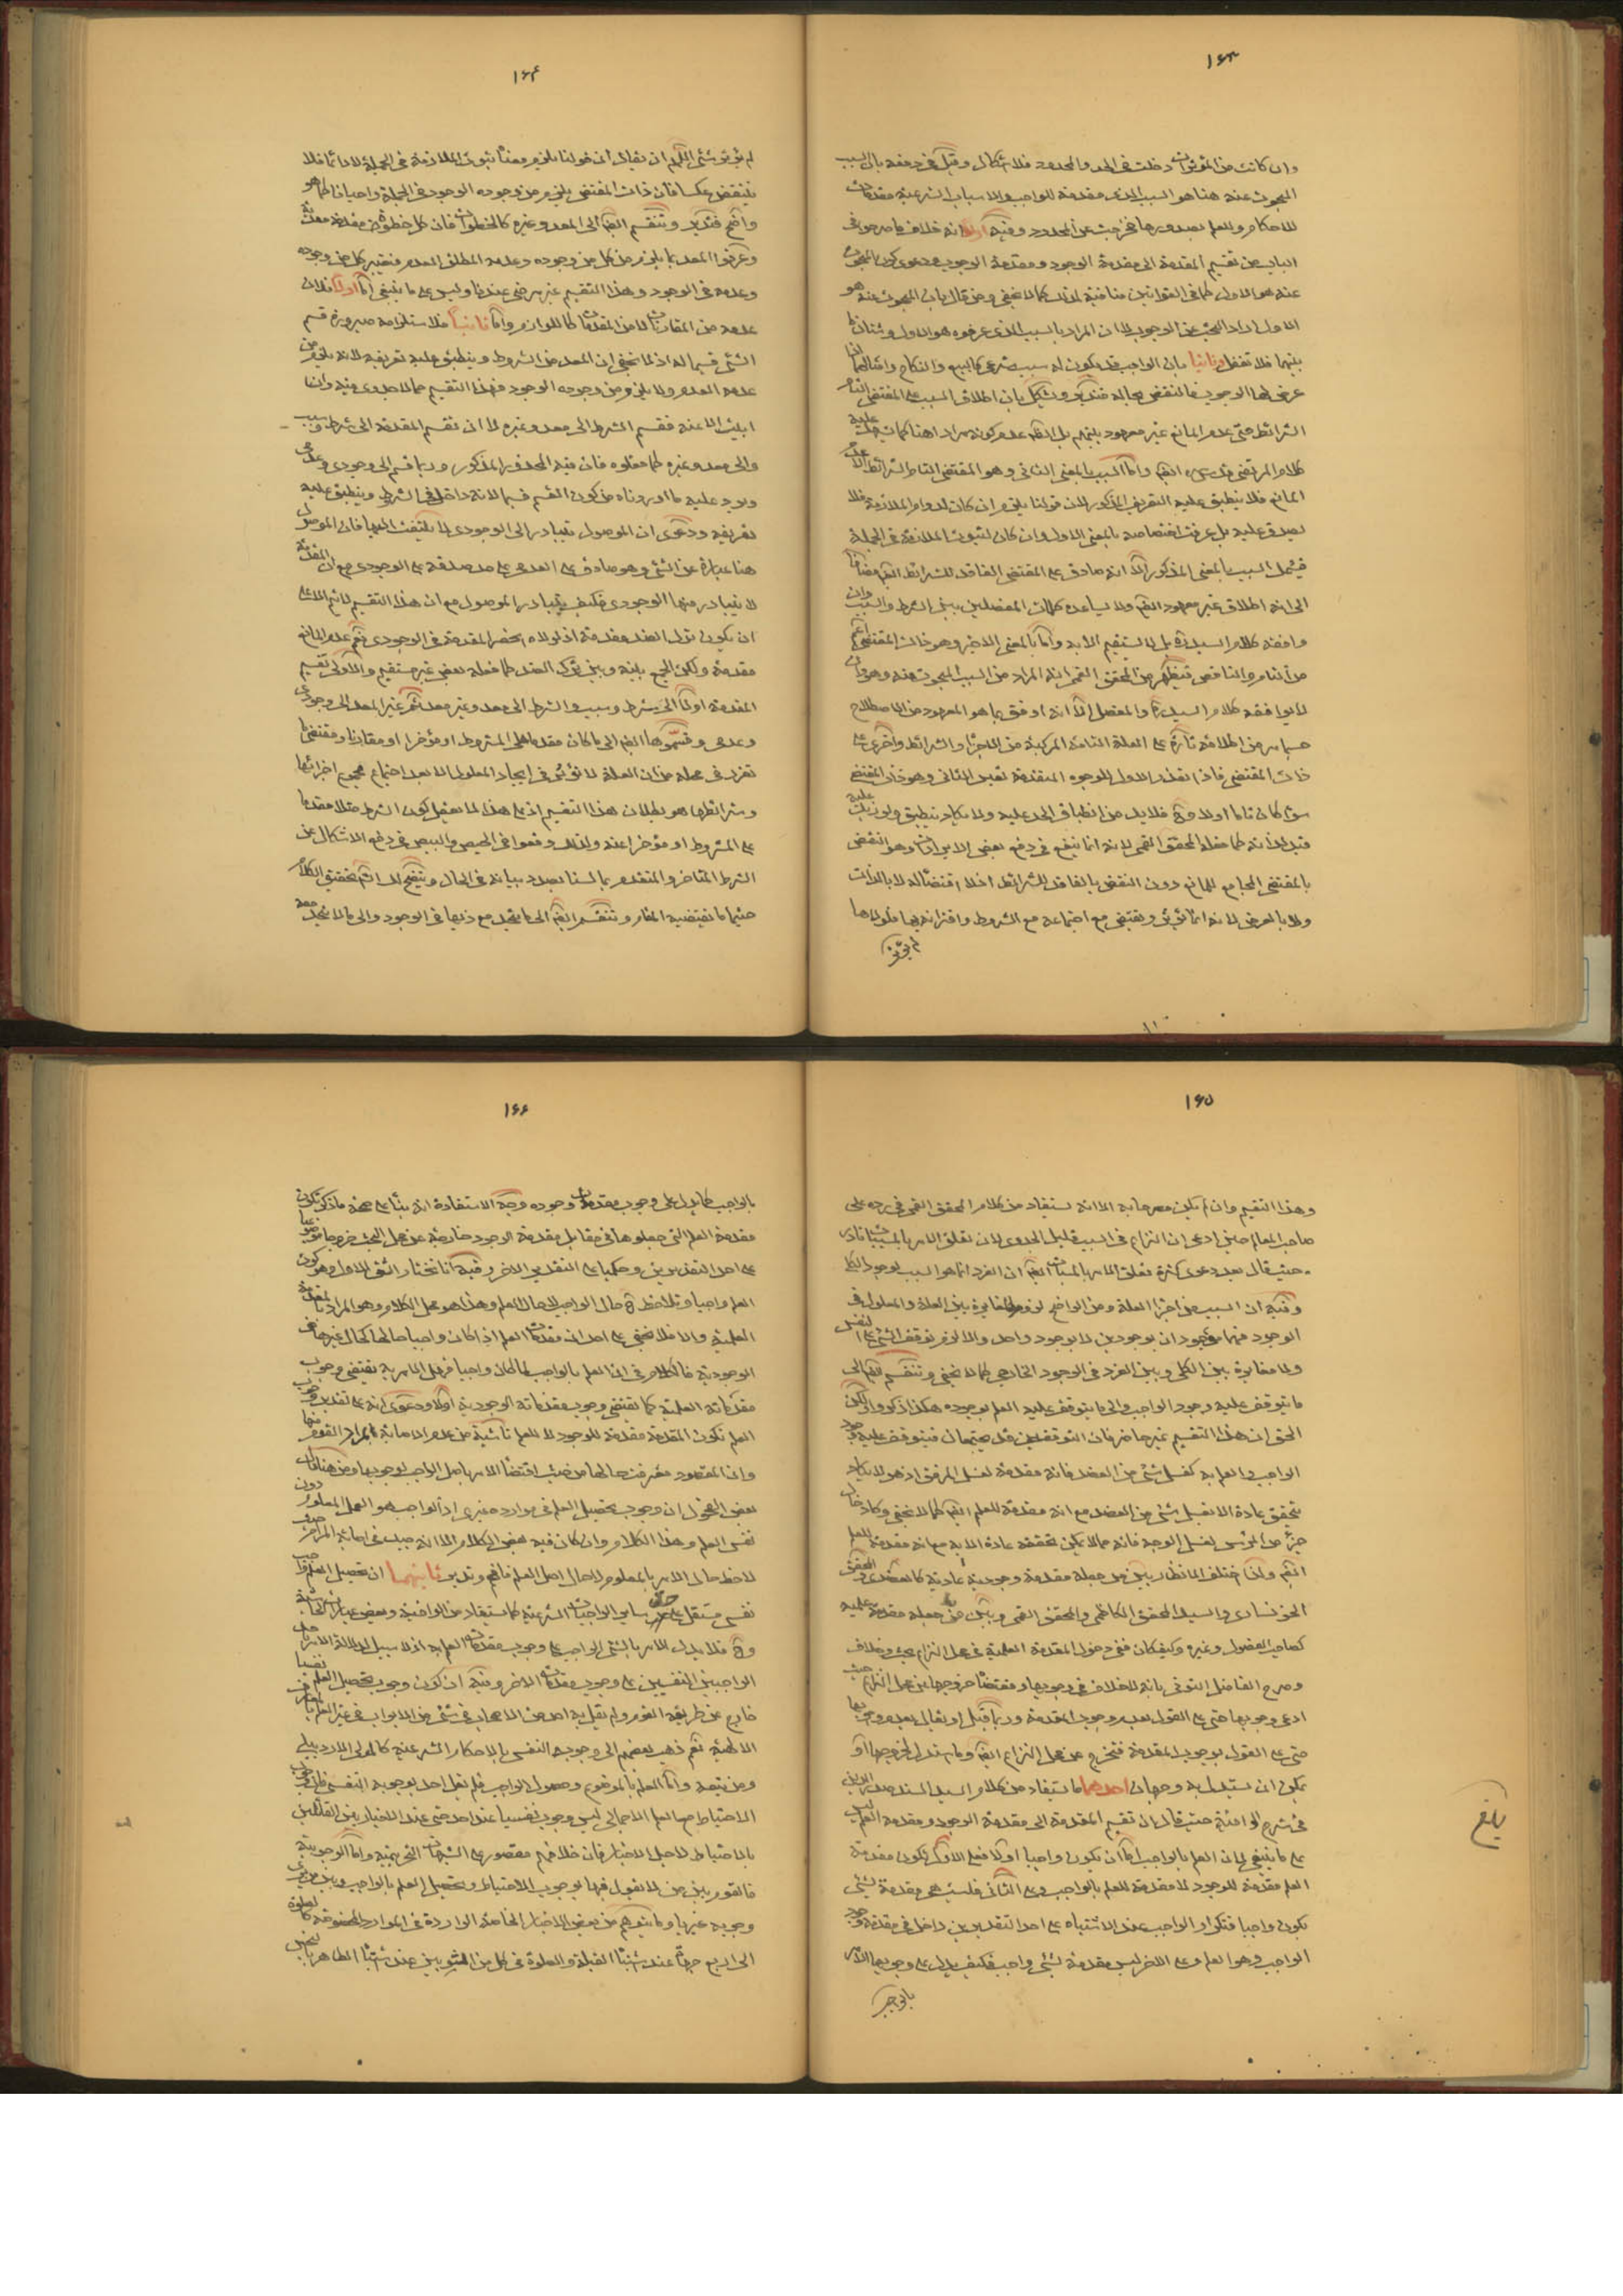 ١٦٣
وان كانت من المؤثرات دخلت فى الحد والمحدود فلا اشكال وقيل فى دفعه بان السبب
المبحوث عنه هنا هو السبب الذى مقدمة للواجب والاسباب الشرعية مقدمات
للاحكام والعلم بصدورها فخرجت عن المحدود وفيه اولا انه خلاف ما صرحوا فى
الباب من تقسيم المقدمة الى مقدمة الوجود ومقدمة الوجوب ودعوى كون المبحوث
عنه هو الاول كما فى القوانين منافية لذلك كما لا يخفى ومن قال بان المبحوث عنه هو
الاول اراد البحث عن الوجوب لا ان المراد بالسبب الذى عرفوه هو الاول وشتان ما
بينهما فلا تغفل وثانيا بان الواجب قد يكون له سبب شرعى كالبيع والنكاح وامثالهما اذا
عرض لها الوجوب فالنقض بحاله فتدبر ويشكل بان اطلاق السبب على المقتضى التام
الشرائط حتى عدم المانع غير معهود بينهم بل الظاهر عدم كونه مرادا هنا كما نبه عليه
كلام المرتضى قدس سره ايضا واما السبب بالمعنى الثانى وهو المقتضى التام الشرائط الا عدم
المانع فلا ينطبق عليه التعريف المذكور لان قولنا يلزم ان كان لدوام الملازمة فلا
يصدق عليه بل عرفت اختصاصه بالمعنى الاول وان كان لثبوت الملازمة فى الجملة
فيشمل السبب بالمعنى المذكور الا انه صادق على المقتضى الفاقد للشرائط ايضا مضافا
الى انه اطلاق غير معهود ايضا ولا يساعده كلمات المفصلين بين الشرط والسبب وان
وافقه كلام السيد ره بل لا يستقيم الا به واما بالمعنى الاخير وهو ذات المقتضى اعم
من التام والناقص فيظهر من المحقق القمى انه المراد من السبب المبحوث عنه وهو وان
لا يوافقه كلام السيد ره والمفصل الا انه اوفق بما هو المعهود من الاصطلاح
حسبما مر من اطلاقه تارة على العلة التامة المركبة من الاجزاء والشرائط واخرى على
ذات المقتضى فاذا تعذر الاول للوجوه المتقدمة تعين الثانى وهو ذات المقتضى
سواء كان تاما اولا وح فلا بد من انطباق الحد عليه ولا يكاد ينطبق ولو زيد عليه
قيد لذاته كما فعله المحقق القمى لانه انما ينفع فى دفع بعض الايرادات وهو النقض
بالمقتضى المجامع للمانع دون النقض بالفاقد للشرائط اذ لا اقتضاء له لا بالذات
ولا بالعرض لانه انما يؤثر ويقتضى مع اجتماعه مع الشروط واقترانه بها فلولاها
لم يؤثر
١٦٤
لم يؤثر شئ اللهم ان يقال ان قولنا يلزم معناه ثبوت الملازمة فى الجملة لا دائما فلا
ينتقض عكسا فان ذات المقتضى يلزم من وجوده الوجود فى الجملة واحيانا كما هو
واضح فتدبر وتنقسم ايضا الى المعد وغيره كالخطوات فان كل خطوة مقدمة معدة
وعرفوا المعد بما يلزم من كل من وجوده وعدمه المطلق العدم فيعتبر كل من وجوده
وعدمه فى الوجود وهذا التقسيم غير مرضى عندنا وليس على ما ينبغى اما اولا فلان
عدمه من المقارنات لا من المقدمات كاللوازم واما ثانيا فلاستلزامه صيرورة قسم
الشئ قسيما له اذ لا يخفى ان المعد من الشروط وينطبق عليه تعريفه لانه يلزم من
عدمه العدم ولا يلزم من وجوده الوجود فهذا التقسيم مما لا جدوى فيه وان
ابيت الا عنه فقسم الشرط الى معد وغيره لا ان تقسم المقدمة الى شرط وسبب
والى معد وغيره كما فعلوه فان فيه المحذور المذكور وربما قسم الى وجودى وعدمى
ويرد عليه ما اوردناه من كون القسم قسيما لانه داخل فى الشرط وينطبق عليه
تعريفه ودعوى ان الموصول يتبادر الى الوجودى لا يلتفت اليها فان الموصول
هنا عبارة عن الشئ وهو صادق على العدمى على حد صدقه على الوجودى مع ان المقدمة
لا يتبادر منها الوجودى فكيف يتبادر الموصول مع ان هذا التقسيم لا يتم الا على
ان يكون ترك الضد مقدمة اذ لولاه انحصر المقدمة فى الوجودى نعم عدم المانع
مقدمة ولكن الجمع بينه وبين ترك الضد كما فعله بعض غير مستقيم والاولى تقسيم
المقدمة اولا الى شرط وسبب والشرط الى معد وغير معد ثم غير المعد الى وجودى
وعدمى وقسموها ايضا الى ما كان مقدما على المشروط او مؤخرا او مقارنا ومقتضى ما
تقرر فى محله من ان العلة لا تؤثر فى ايجاد المعلول الا بعد اجتماع جميع اجزائها
وشرائطها هو بطلان هذا التقسيم اذ على هذا لا يعقل كون الشرط مثلا مقدما
على المشروط او مؤخرا عنه ولذلك وقعوا فى الحيص والبيص فى دفع الاشكال عن
الشرط المتاخر والمتقدم بما لسنا بصدد بيانه فى الحال وسيتضح لك انشاء تحقيق الكلام
حيثما يقتضيه المقام وتنقسم ايضا الى ما يتحد مع ذيها فى الوجود والى ما لا يتحد معه
١٦٥
وهذا التقسيم وان لم يكن مصرحا به الا انه يستفاد من كلام المحقق القمى فى رده على
صاحب المعالم حين ادعى ان النزاع فى السبب قليل الجدوى لان تعلق الامر بالمسببات نادر
حيث قال بعد دعوى كثرة تعلق الامر بالمسببات ايضا ان الفرد انما هو السبب لوجود الكلى
وفيه ان السبب من اجزاء العلة ومن الواضح لزوم المغايرة بين العلة والمعلول فى
الوجود فهما موجودان بوجودين لا بوجود واحد والا لزم توقف الشئ على نفسه
ولا مغايرة بين الكلى وبين الفرد فى الوجود الخارجى كما لا يخفى وتنقسم ايضا الى
ما يتوقف عليه وجود الواجب والى ما يتوقف عليه العلم بوجوده هكذا ذكروا ولكن
الحق ان هذا التقسيم غير حاضر فان التوقفين قد يجتمعان فيتوقف عليه وجود
الواجب والعلم به كغسل شئ من العضد فانه مقدمة لغسل المرفق اذ هو لا يكاد
يتحقق عادة الا بغسل شئ من العضد مع انه مقدمة للعلم ايضا كما لا يخفى وكادخال
جزء من الراس لغسل الوجه فانه مما لا يمكن تحققه عادة الا به مع انه مقدمة للعلم
ايضا ولذا اختلف الانظار بين من جعله مقدمة وجودية عادية كالعضدى والمحقق
الخونسارى والسيد المحقق الكاظمى والمحقق القمى وبين من جعله مقدمة علمية
كصاحب الفصول وغيره وكيف كان ففى دخول المقدمة العلمية فى محل النزاع بحث وخلاف
وصرح الفاضل التونى بانه لا خلاف فى وجوبها ومقتضاه خروجها عن محل النزاع حيث
ادعى وجوبها حتى على القول بعدم وجوب المقدمة وربما قيل او يقال بعدم وجوبها
حتى على القول بوجوب المقدمة فتخرج عن محل النزاع ايضا وما يستدل لخروجها او
يمكن ان يستدل به وجهان احدهما ما يستفاد من كلام السيد السند صدر الدين
فى شرح الوافية حيث قال ان تقسيم المقدمة الى مقدمة الوجود ومقدمة العلم ليس
على ما ينبغى لان العلم بالواجب اما ان يكون واجبا اولا فعلى الاول تكون مقدمة
العلم مقدمة للوجود لا مقدمة للعلم بالواجب وعلى الثانى فليست هى مقدمة لشئ
يكون واجبا فتكرار الواجب عند الاشتباه على احد التقديرين داخل فى مقدمة وجود
الواجب وهو العلم وعلى الاخر ليس مقدمة لشئ واجب فكيف يدل على وجوبها الامر
بالواجب
بلغ
١٦٦
بالواجب كما يدل على وجوب مقدمات وجوده وجه الاستفادة انه بناء على صحة ما ذكر تكون
مقدمة العلم التى جعلوها فى مقابل مقدمة الوجود خارجة عن محل البحث خروجا موضوعيا
على احد التقديرين وحكميا على التقدير الاخر وفيه انا نختار الشق الاول وهو كون
العلم واجبا ونلاحظ ح حال الواجب لا حال العلم وهذا هو محل الكلام وهو المراد بالمقدمة
العلمية والا فلا يخفى على احد ان مقدمات العلم اذا كان واجبا حالها كحال غيرها من
الوجودية فالكلام فى ان العلم بالواجب لما كان واجبا فهل الامر به يقتضى وجوب
مقدماته العلمية كما يقتضى وجوب مقدماته الوجودية اولا ودعوى انه على تقدير وجوب
العلم تكون المقدمة مقدمة للوجود لا للعلم ناشية من عدم الاحاطة بمراد القوم منها
وان المقصود معرفت حالها من حيث اقتضاء الامر باصل الواجب لوجوبها ومن هنا قال
بعض الفحول ان وجوب تحصيل العلم فى موارده غيرى اذ الواجب هو العمل المعلوم دون
نفس العلم وهذا الكلام وان كان فيه بعض الكلام الا انه جيد فى اصابة المرام حيث
لاحظ حال الامر بالمعلوم لا حال اصل العلم فافهم وتدبر ثانيهما ان تحصيل العلم واجب
نفسى مستقل على حد ساير الواجبات الشرعية كما يستفاد من الوافية وبعض عبارات
وح فلا يدل الامر بالشئ الواجب على وجوب مقدمات العلم به اذ لا سبيل لدلالة الامر باحد
الواجبين النفسيين على وجوب مقدمات الاخر وفيه ان كون وجوب تحصيل العلم نفسيا
خارج عن طريقة القوم ولم يقل به احد من الاصحاب فى شئ من الابواب فى غير العلم بالمعارف
الالهية نعم ذهب بعضهم الى وجوبه النفسى بالاحكام الشرعية كالمولى الاردبيلى
ومن تبعه واما العلم بالموضوع وحصول الواجب فلم يقل احد بوجوبه النفسى فان وجوب
الاحتياط مع العلم الاجمالى ليس وجوبه نفسيا عند احد حتى عند الاخباريين القائلين
بالاحتياط لاجل الاخبار فان خلافهم مقصور على الشبهات التحريمية واما الوجوبية
فالقوم بين من لا يقول فيها بوجوب الاحتياط وتحصيل العلم بالواجب وبين من يرى
وجوبه غيريا وما يتوهم من بعض الاخبار الخاصة الواردة فى الموارد المخصوصة كالصلوة
الى اربع جهات عند اشتباه القبلة والصلوة فى كل من الثوبين عند اشتباه الطاهر بالنجس